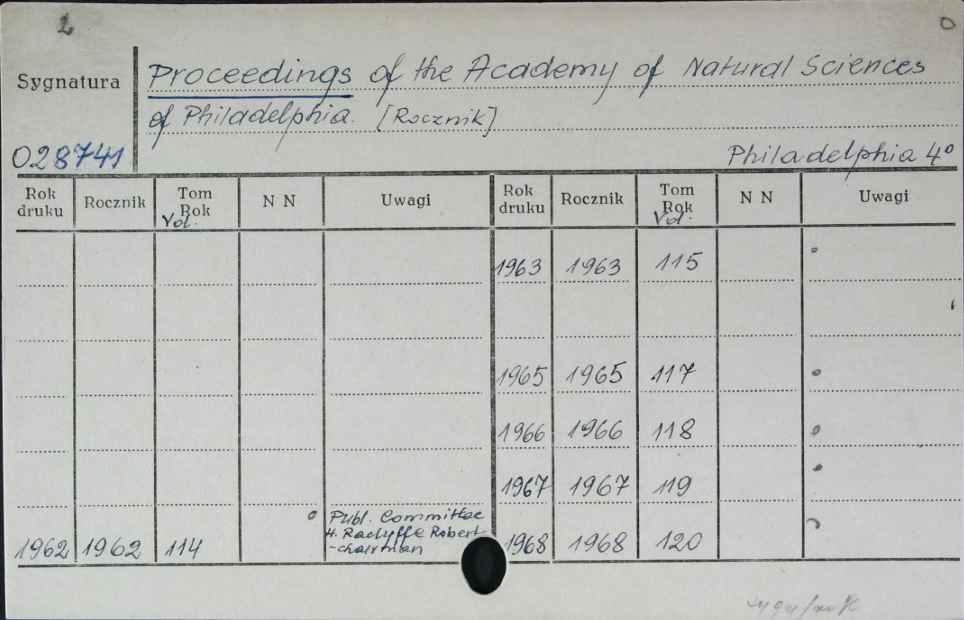 2
Sygnatura
Proceedings of the Academy of Natural Sciences
of Philadelphia. [Rocznik]
028741
Philadelphia 4°
Rok druku Rocznik Tom Rok Vol. N N Uwagi Rok druku Rocznik Tom Rok Vol. N N Uwagi
1963 1963 115
1965 1965 117
1966 1966 118
1967 1967 119
Publ. Committee
H. Radyffe Robert
-chairman
1962 1962 114 1968 1968 120